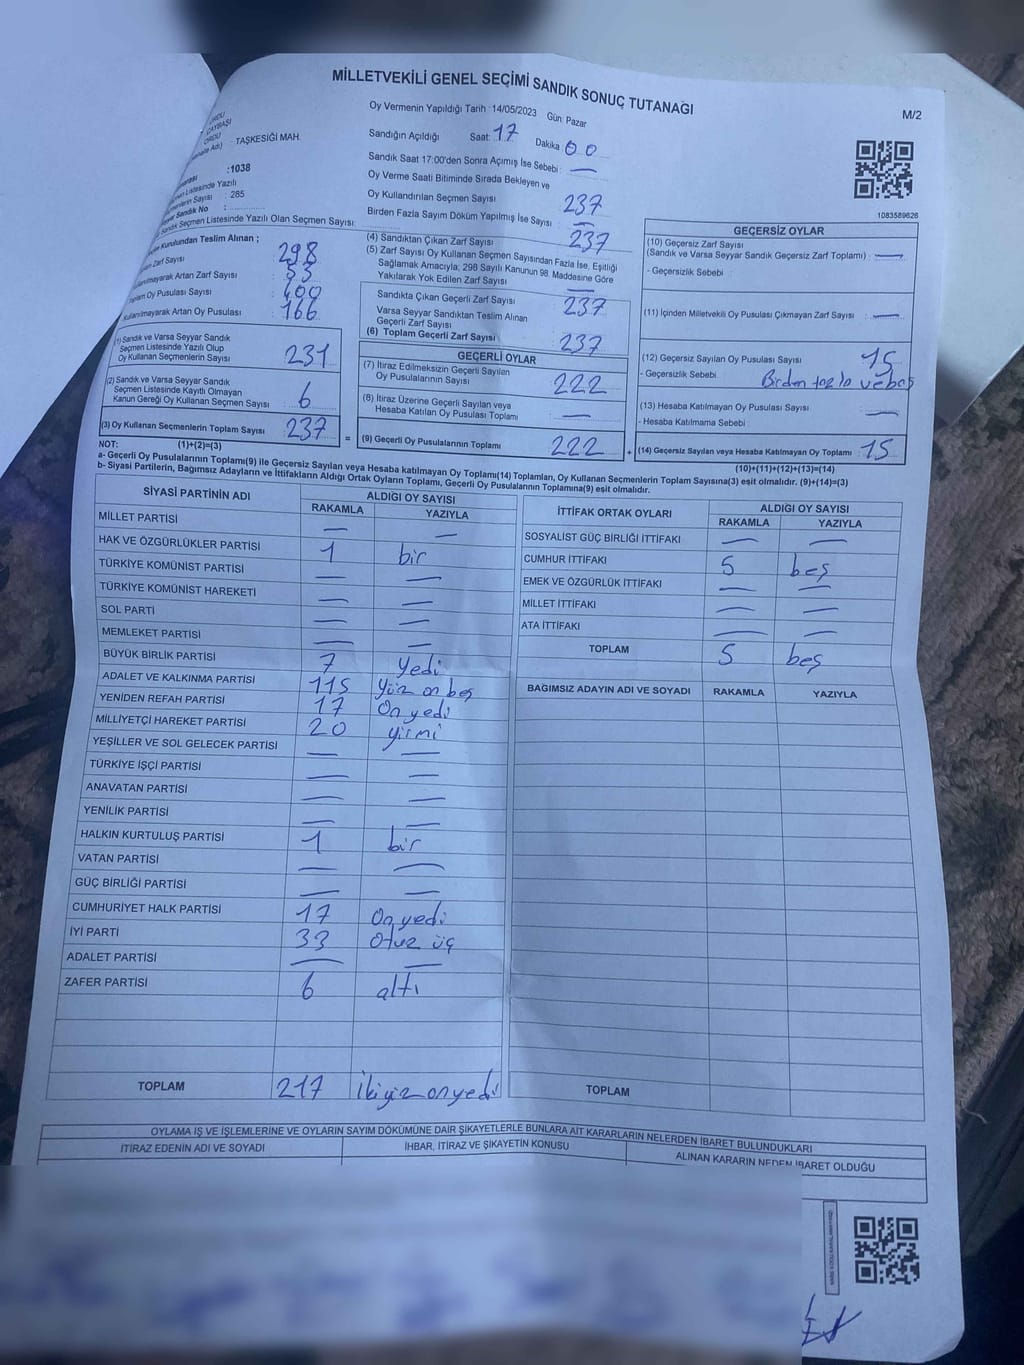 MİLLETVEKİLİ GENEL SEÇİMİ SANDIK SONUÇ TUTANAĞI
M/2
Oy Vermenin Yapıldığı Tarih : 14/05/2023 Gün: Pazar
ORDU
ÇAYBAŞI
ORDU
TAŞKESİĞİ MAH.
:1038
Listesinde Yazılı
Sayısı : 285
Sandık No :
Sandık Seçmen Listesinde Yazılı Olan Seçmen Sayısı:
Sandığın Açıldığı Saat: 17 Dakika 00
Sandık Saat 17:00'den Sonra Açımış İse Sebebi : —
Oy Verme Saati Bitiminde Sırada Bekleyen ve
Oy Kullandırılan Seçmen Sayısı 237
Birden Fazla Sayım Döküm Yapılmış İse Sayısı : —
1083589626
Kurulundan Teslim Alınan ;
Zarf Sayısı 298
Artan Zarf Sayısı 53
Oy Pusulası Sayısı 400
Artan Oy Pusulası 166
(1) Sandık ve Varsa Seyyar Sandık
Seçmen Listesinde Yazılı Olup
Oy Kullanan Seçmenlerin Sayısı 231
(2) Sandık ve Varsa Seyyar Sandık
Seçmen Listesinde Kayıtlı Olmayan
Kanun Gereği Oy Kullanan Seçmen Sayısı 6
(3) Oy Kullanan Seçmenlerin Toplam Sayısı 237
(4) Sandıktan Çıkan Zarf Sayısı 237
(5) Zarf Sayısı Oy Kullanan Seçmen Sayısından Fazla İse, Eşitliği
Sağlamak Amacıyla; 298 Sayılı Kanunun 98. Maddesine Göre
Yakılarak Yok Edilen Zarf Sayısı —
Sandıkta Çıkan Geçerli Zarf Sayısı 237
Varsa Seyyar Sandıktan Teslim Alınan
Geçerli Zarf Sayısı
(6) Toplam Geçerli Zarf Sayısı : 237
GEÇERLİ OYLAR
(7) İtiraz Edilmeksizin Geçerli Sayılan
Oy Pusulalarının Sayısı 222
(8) İtiraz Üzerine Geçerli Sayılan veya
Hesaba Katılan Oy Pusulası Toplamı —
= (9) Geçerli Oy Pusulalarının Toplamı 222
GEÇERSİZ OYLAR
(10) Geçersiz Zarf Sayısı
(Sandık ve Varsa Seyyar Sandık Geçersiz Zarf Toplamı) : —
- Geçersizlik Sebebi :
(11) İçinden Milletvekili Oy Pusulası Çıkmayan Zarf Sayısı : —
(12) Geçersiz Sayılan Oy Pusulası Sayısı : 15
- Geçersizlik Sebebi : Birden fazla ve boş
(13) Hesaba Katılmayan Oy Pusulası Sayısı : —
- Hesaba Katılmama Sebebi :
+ (14) Geçersiz Sayılan veya Hesaba Katılmayan Oy Toplamı : 15
NOT: (1)+(2)=(3)
(10)+(11)+(12)+(13)=(14)
a- Geçerli Oy Pusulalarının Toplamı(9) ile Geçersiz Sayılan veya Hesaba katılmayan Oy Toplamı(14) Toplamları, Oy Kullanan Seçmenlerin Toplam Sayısına(3) eşit olmalıdır. (9)+(14)=(3)
b- Siyasi Partilerin, Bağımsız Adayların ve İttifakların Aldığı Ortak Oyların Toplamı, Geçerli Oy Pusulalarının Toplamına(9) eşit olmalıdır.
SİYASİ PARTİNİN ADI ALDIĞI OY SAYISI
RAKAMLA YAZIYLA
MİLLET PARTİSİ — —
HAK VE ÖZGÜRLÜKLER PARTİSİ 1 bir
TÜRKİYE KOMÜNİST PARTİSİ — —
TÜRKİYE KOMÜNİST HAREKETİ — —
SOL PARTİ — —
MEMLEKET PARTİSİ — —
BÜYÜK BİRLİK PARTİSİ 7 yedi
ADALET VE KALKINMA PARTİSİ 115 Yüz on beş
YENİDEN REFAH PARTİSİ 17 On yedi
MİLLİYETÇİ HAREKET PARTİSİ 20 yirmi
YEŞİLLER VE SOL GELECEK PARTİSİ — —
TÜRKİYE İŞÇİ PARTİSİ — —
ANAVATAN PARTİSİ — —
YENİLİK PARTİSİ — —
HALKIN KURTULUŞ PARTİSİ 1 bir
VATAN PARTİSİ — —
GÜÇ BİRLİĞİ PARTİSİ — —
CUMHURİYET HALK PARTİSİ 17 On yedi
İYİ PARTİ 33 Otuz üç
ADALET PARTİSİ — —
ZAFER PARTİSİ 6 altı
TOPLAM 217 İkiyüz onyedi
İTTİFAK ORTAK OYLARI ALDIĞI OY SAYISI
RAKAMLA YAZIYLA
SOSYALİST GÜÇ BİRLİĞİ İTTİFAKI — —
CUMHUR İTTİFAKI 5 beş
EMEK VE ÖZGÜRLÜK İTTİFAKI — —
MİLLET İTTİFAKI — —
ATA İTTİFAKI — —
TOPLAM 5 beş
BAĞIMSIZ ADAYIN ADI VE SOYADI RAKAMLA YAZIYLA
TOPLAM
OYLAMA İŞ VE İŞLEMLERİNE VE OYLARIN SAYIM DÖKÜMÜNE DAİR ŞİKAYETLERLE BUNLARA AİT KARARLARIN NELERDEN İBARET BULUNDUKLARI
İTİRAZ EDENİN ADI VE SOYADI İHBAR, İTİRAZ VE ŞİKAYETİN KONUSU ALINAN KARARIN NEDEN İBARET OLDUĞU